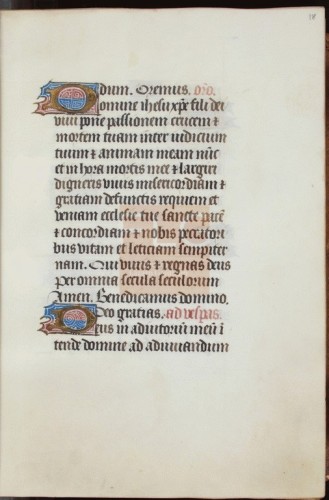 18
dum. Oremus. oro
Domine ihesu xpe fili dei
viui pone passionem crucem &
mortem tuam inter iudicium
tuum & animam meam nūc
et in hora mortis mee & largiri
digneris viuis misericordiam &
gratiam defunctis requiem et
veniam ecclesie tue sancte pacē
& concordiam & nobis peccatori
bus vitam et leticiam sempiter
nam. Qui viuis & regnas deus
per omnia secula seculorum
Amen. Benedicamus domino.
Deo gratias. ad vespas.
Deus in adiutoriū meū ī
tende domine ad adiuuandum